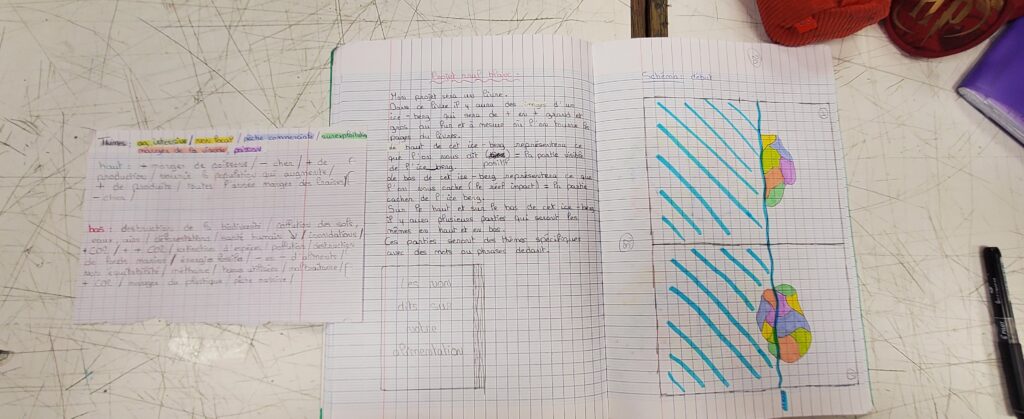 Thèmes : / pêche commerciale / surexploitation
haut : + manger de poissons / - cher / + de
production / nourrir la population qui augmente /
+ de produits / toutes l'année manger des fraises /
- cher /
bas : destruction de la biodiversité / pollution des sols,
eaux, airs / déforestation / santé humain / inondations /
+ CO2 / / extinction d'espèces / pollution / destruction
de fonds marins / énergie fossile / - es - d'aliments /
Non équitabilité / méthane / maltraitance /
+ CO2 / manger du plastique / pêche
Projet oeuf blanc :
Mon projet sera un livre.
Dans ce livre il y aura des images d'un
ice-berg qui sera de + en + grand et
gros au fur et à mesure où l'on tourne les
pages du livre.
Le haut de cet ice-berg représentera ce
que l'on nous dit positif = la partie visible
de l'ice berg.
Le bas de cet ice-berg représentera ce que
l'on nous cache (le réel impact) = la partie
cachée de l'ice berg.
Sur le haut et sur le bas de cet ice-berg
il y aura plusieurs parties qui seront les
mêmes en haut et en bas.
Ces parties seront des thèmes spécifiques
avec des mots ou phrases dedant.
Les non
dits sur
notre
alimentation
Schéma : début